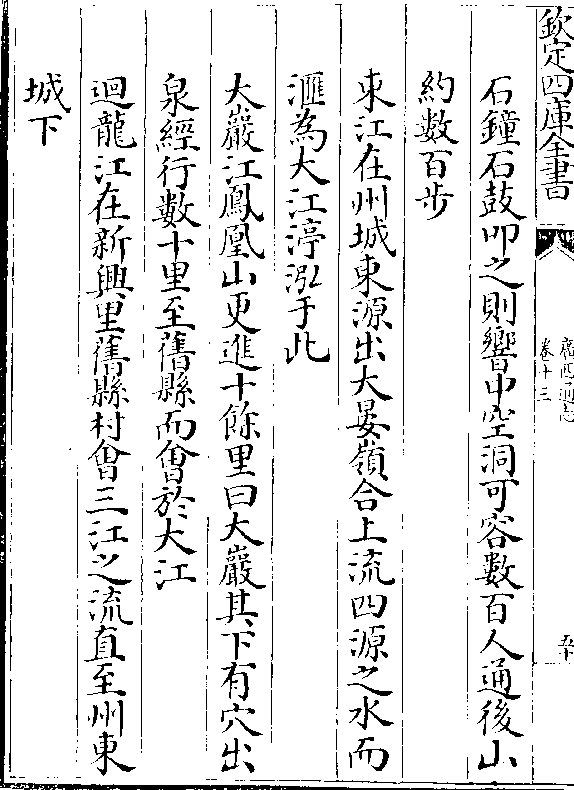 欽定四庫全書
廣西通志
卷十三
五十
石鐘石鼓叩之則響中空洞可容數百人通後山
約數百步
東江在州城東源出大晏嶺合上流四源之水而
滙為大江渟泓于此
大巖江鳳凰山更進十餘里曰大巖其下有穴出
泉經行數十里至舊縣而會於大江
迴龍江在新興里舊縣村會三江之流直至州東
城下